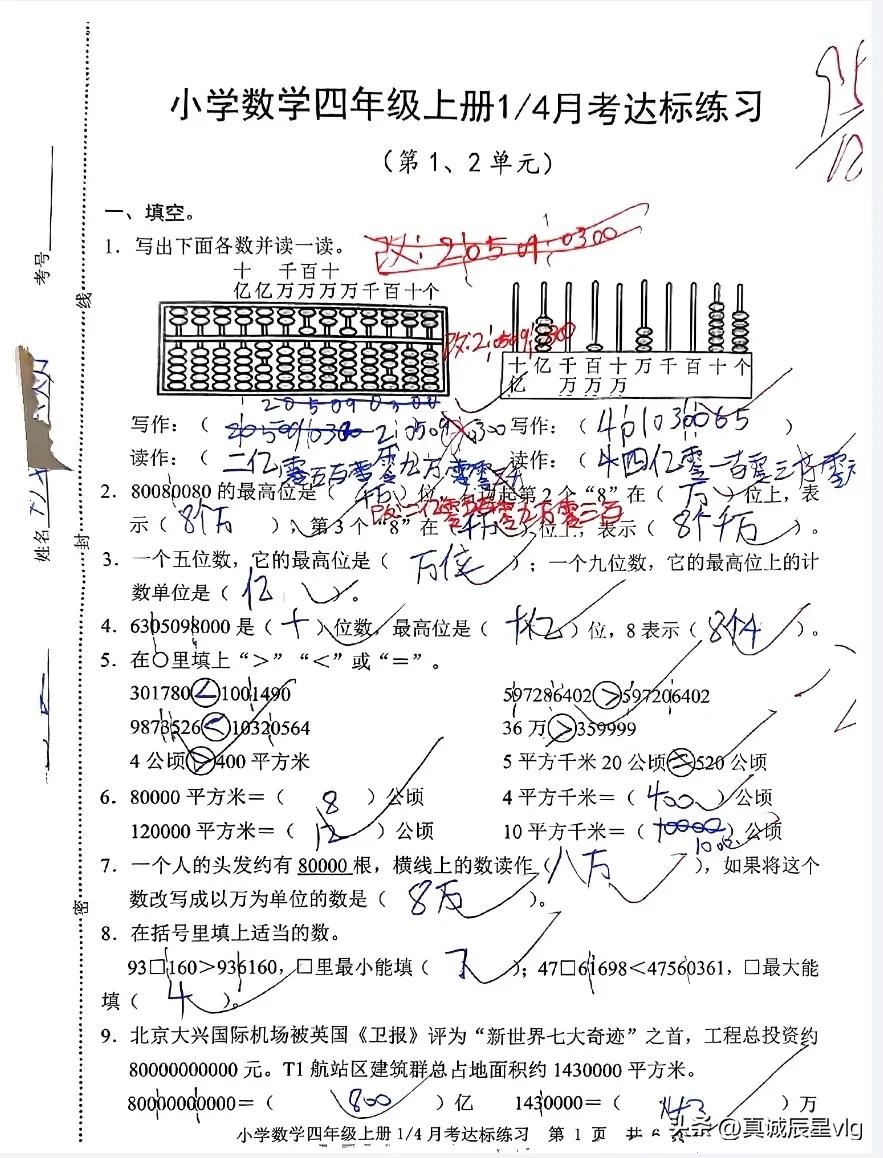 小学数学四年级上册1/4月考达标练习
（第1、2单元）
一、填空。
1．写出下面各数并读一读。
改：205090300
十 千百十
亿亿万万万万千百十个
十亿千百十万千百十个
亿 万万万
写作：（ 写作：（ 401030065 ）
读作：（ 读作：（
2．80080080的最高位是（ 千万 ）位，
起第2个“8”在（ 万 ）位上，表
示（ 8个万 ），第3个“8”在（ 千万 ）位上，表示（ 8个千万 ）。
3．一个五位数，它的最高位是（ 万位 ）；一个九位数，它的最高位上的计
数单位是（ 亿 ）。
4．6305098000是（ 十 ）位数，最高位是（ 十亿 ）位，8表示（ 8个千 ）。
5．在○里填上“>”“<”或“=”。
301780<1001490 597286402>597206402
9873526<10320564 36万>359999
4公顷>400平方米 5平方千米20公顷=520公顷
6．80000平方米=（ 8 ）公顷 4平方千米=（ 400 ）公顷
120000平方米=（ 12 ）公顷 10平方千米=（ 10000 ）公顷
1000
7．一个人的头发约有80000根，横线上的数读作（ 八万 ），如果将这个
数改写成以万为单位的数是（ 8万 ）。
8．在括号里填上适当的数。
93□160>936160，□里最小能填（ 7 ）；47□61698<47560361，□最大能
填（ 4 ）。
9．北京大兴国际机场被英国《卫报》评为“新世界七大奇迹”之首，工程总投资约
80000000000元。T1航站区建筑群总占地面积约1430000平方米。
80000000000=（ 800 ）亿 1430000=（ 143 ）万
小学数学四年级上册1/4月考达标练习 第1页 共6页
头条@真诚辰星vlg
考号
姓名
线
封
密